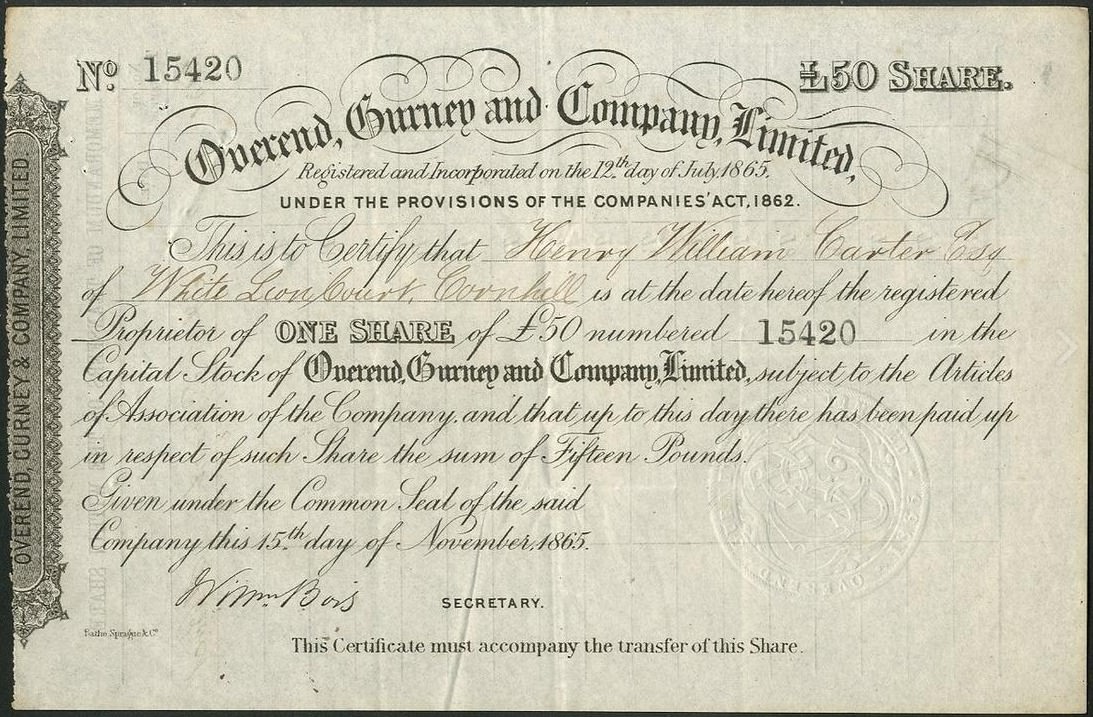 No. 15420
£50 SHARE.
Overend, Gurney and Company, Limited,
Registered and Incorporated on the 12th day of July, 1865,
UNDER THE PROVISIONS OF THE COMPANIES' ACT, 1862.
This is to Certify that Henry William Carter Esq
of White Lion Court, Cornhill is at the date hereof the registered
Proprietor of ONE SHARE of £50 numbered 15420 in the
Capital Stock of Overend, Gurney and Company, Limited, subject to the Articles
of Association of the Company, and that up to this day there has been paid up
in respect of such Share the sum of Fifteen Pounds.
Given under the Common Seal of the said
Company this 15th day of November, 1865.
Wm Bois SECRETARY.
This Certificate must accompany the transfer of this Share.
OVEREND, GURNEY & COMPANY, LIMITED
Sprague & Co
OVEREND